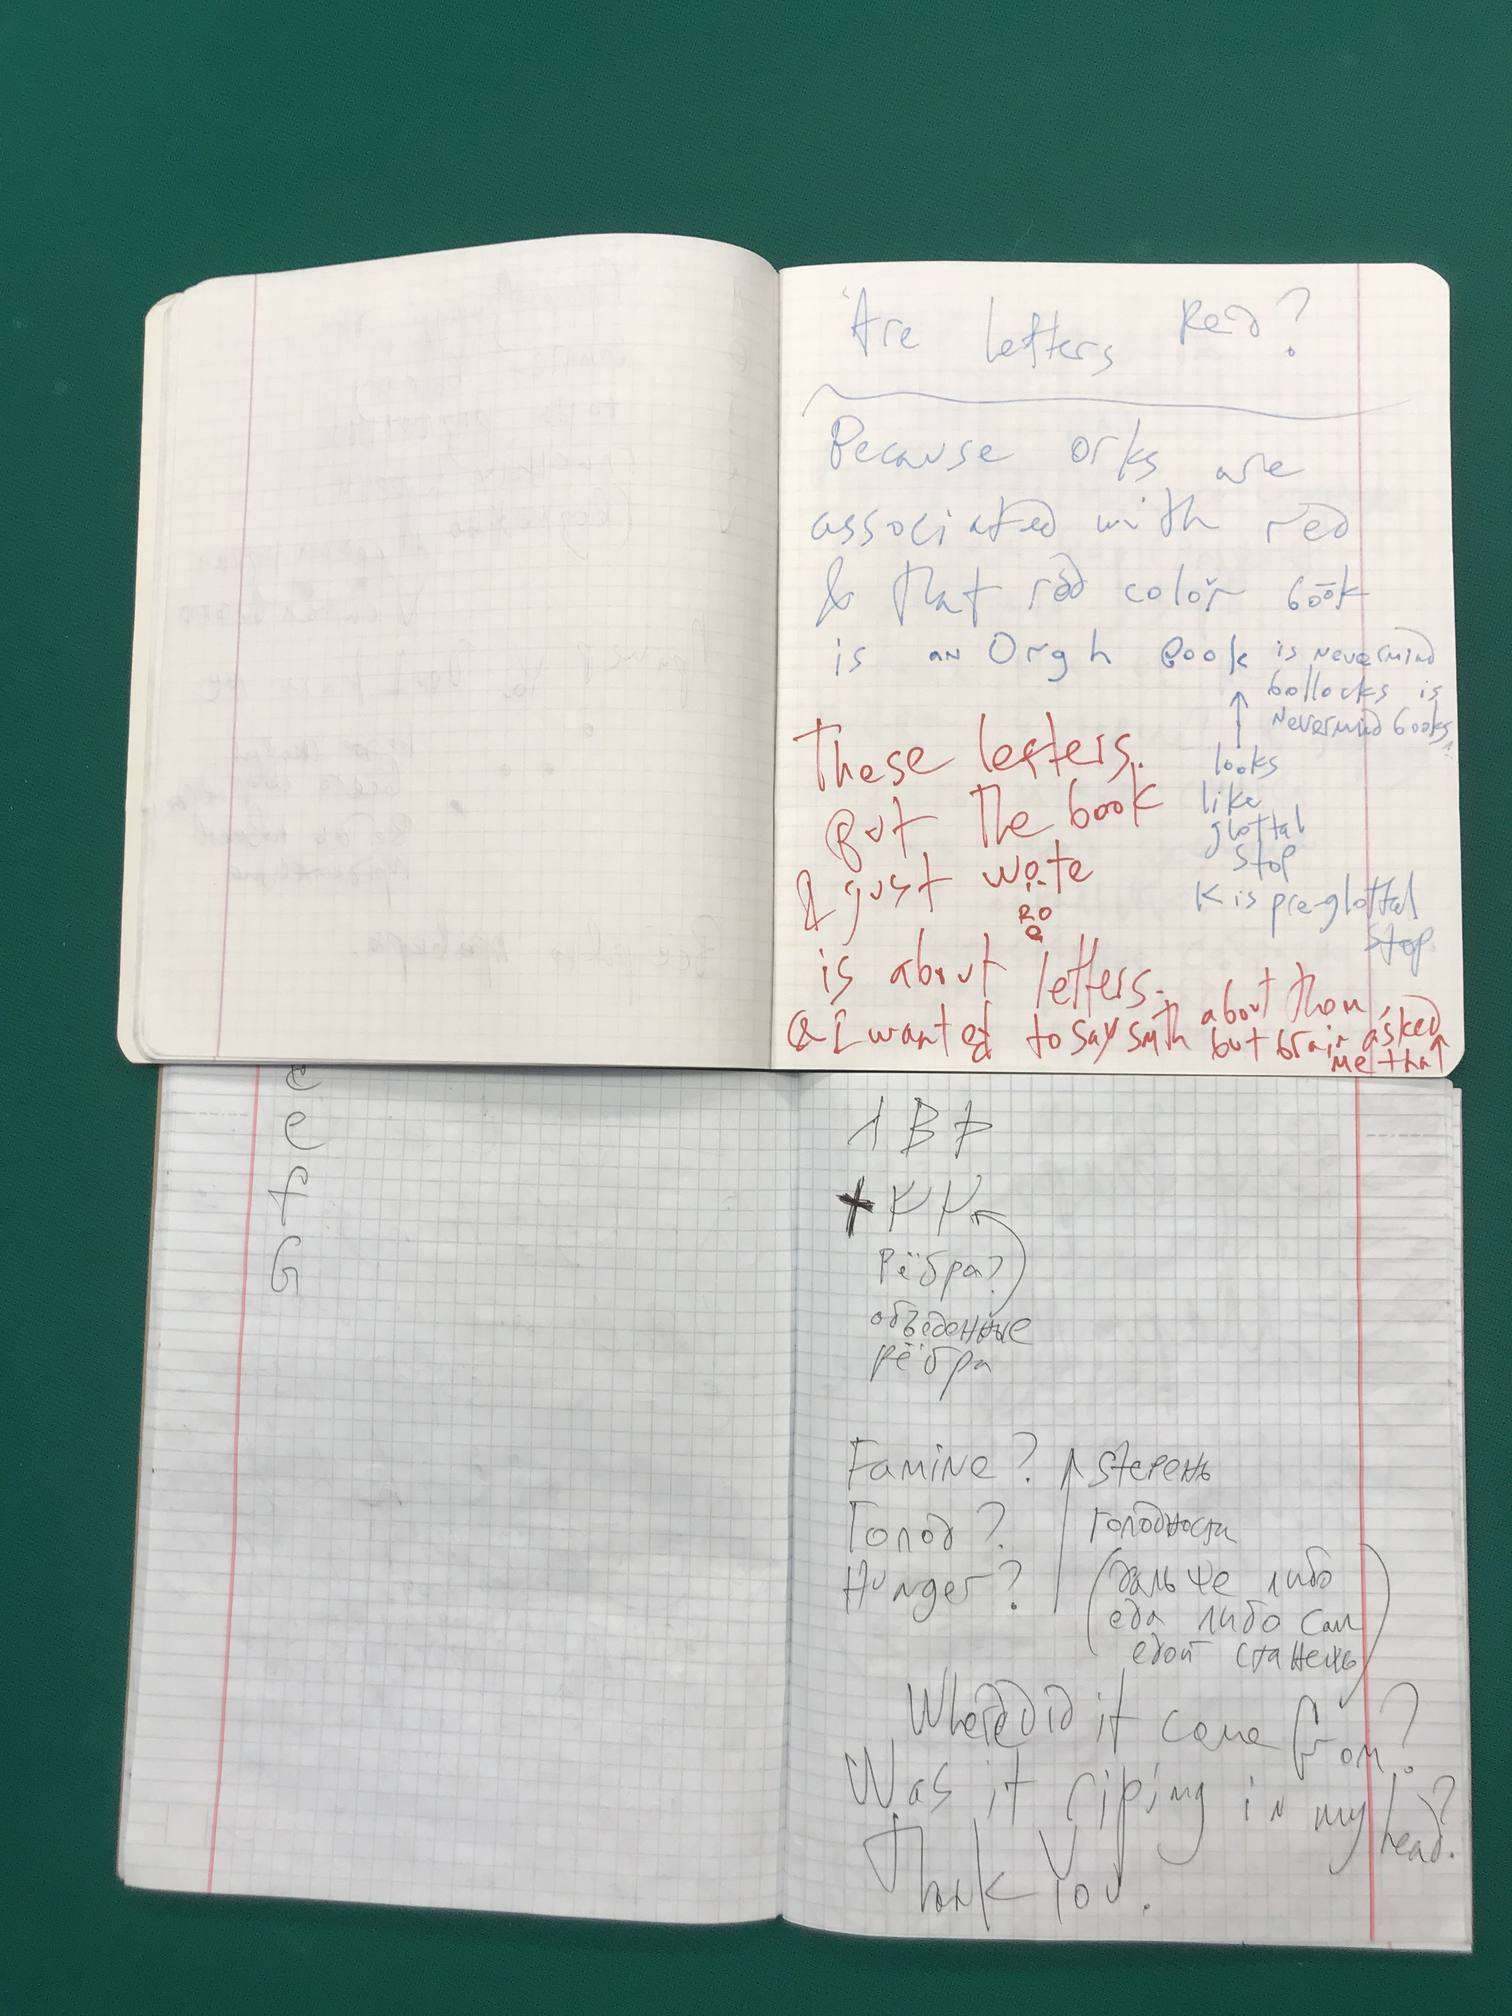 Are letters Red?
Because orks are
associated with red
& that red color book
is an Orgh Book
is nevermind
bollocks is
nevermind books
↑
looks
like
glottal
stop
K is pre-glottal
stop
These letters.
But the book
I just wote
RO
is about letters.
& I wanted to say smth about them,
but brain asked
me that↑
e
e
f
G
1 B
Рёбра?
объеденные
рёбра
Famine?
Голод?
Hunger?
голодности
(дальше либо
еда либо сам
едой станешь)
Where Did it come from?
Was it riping in my head?
Thank You.